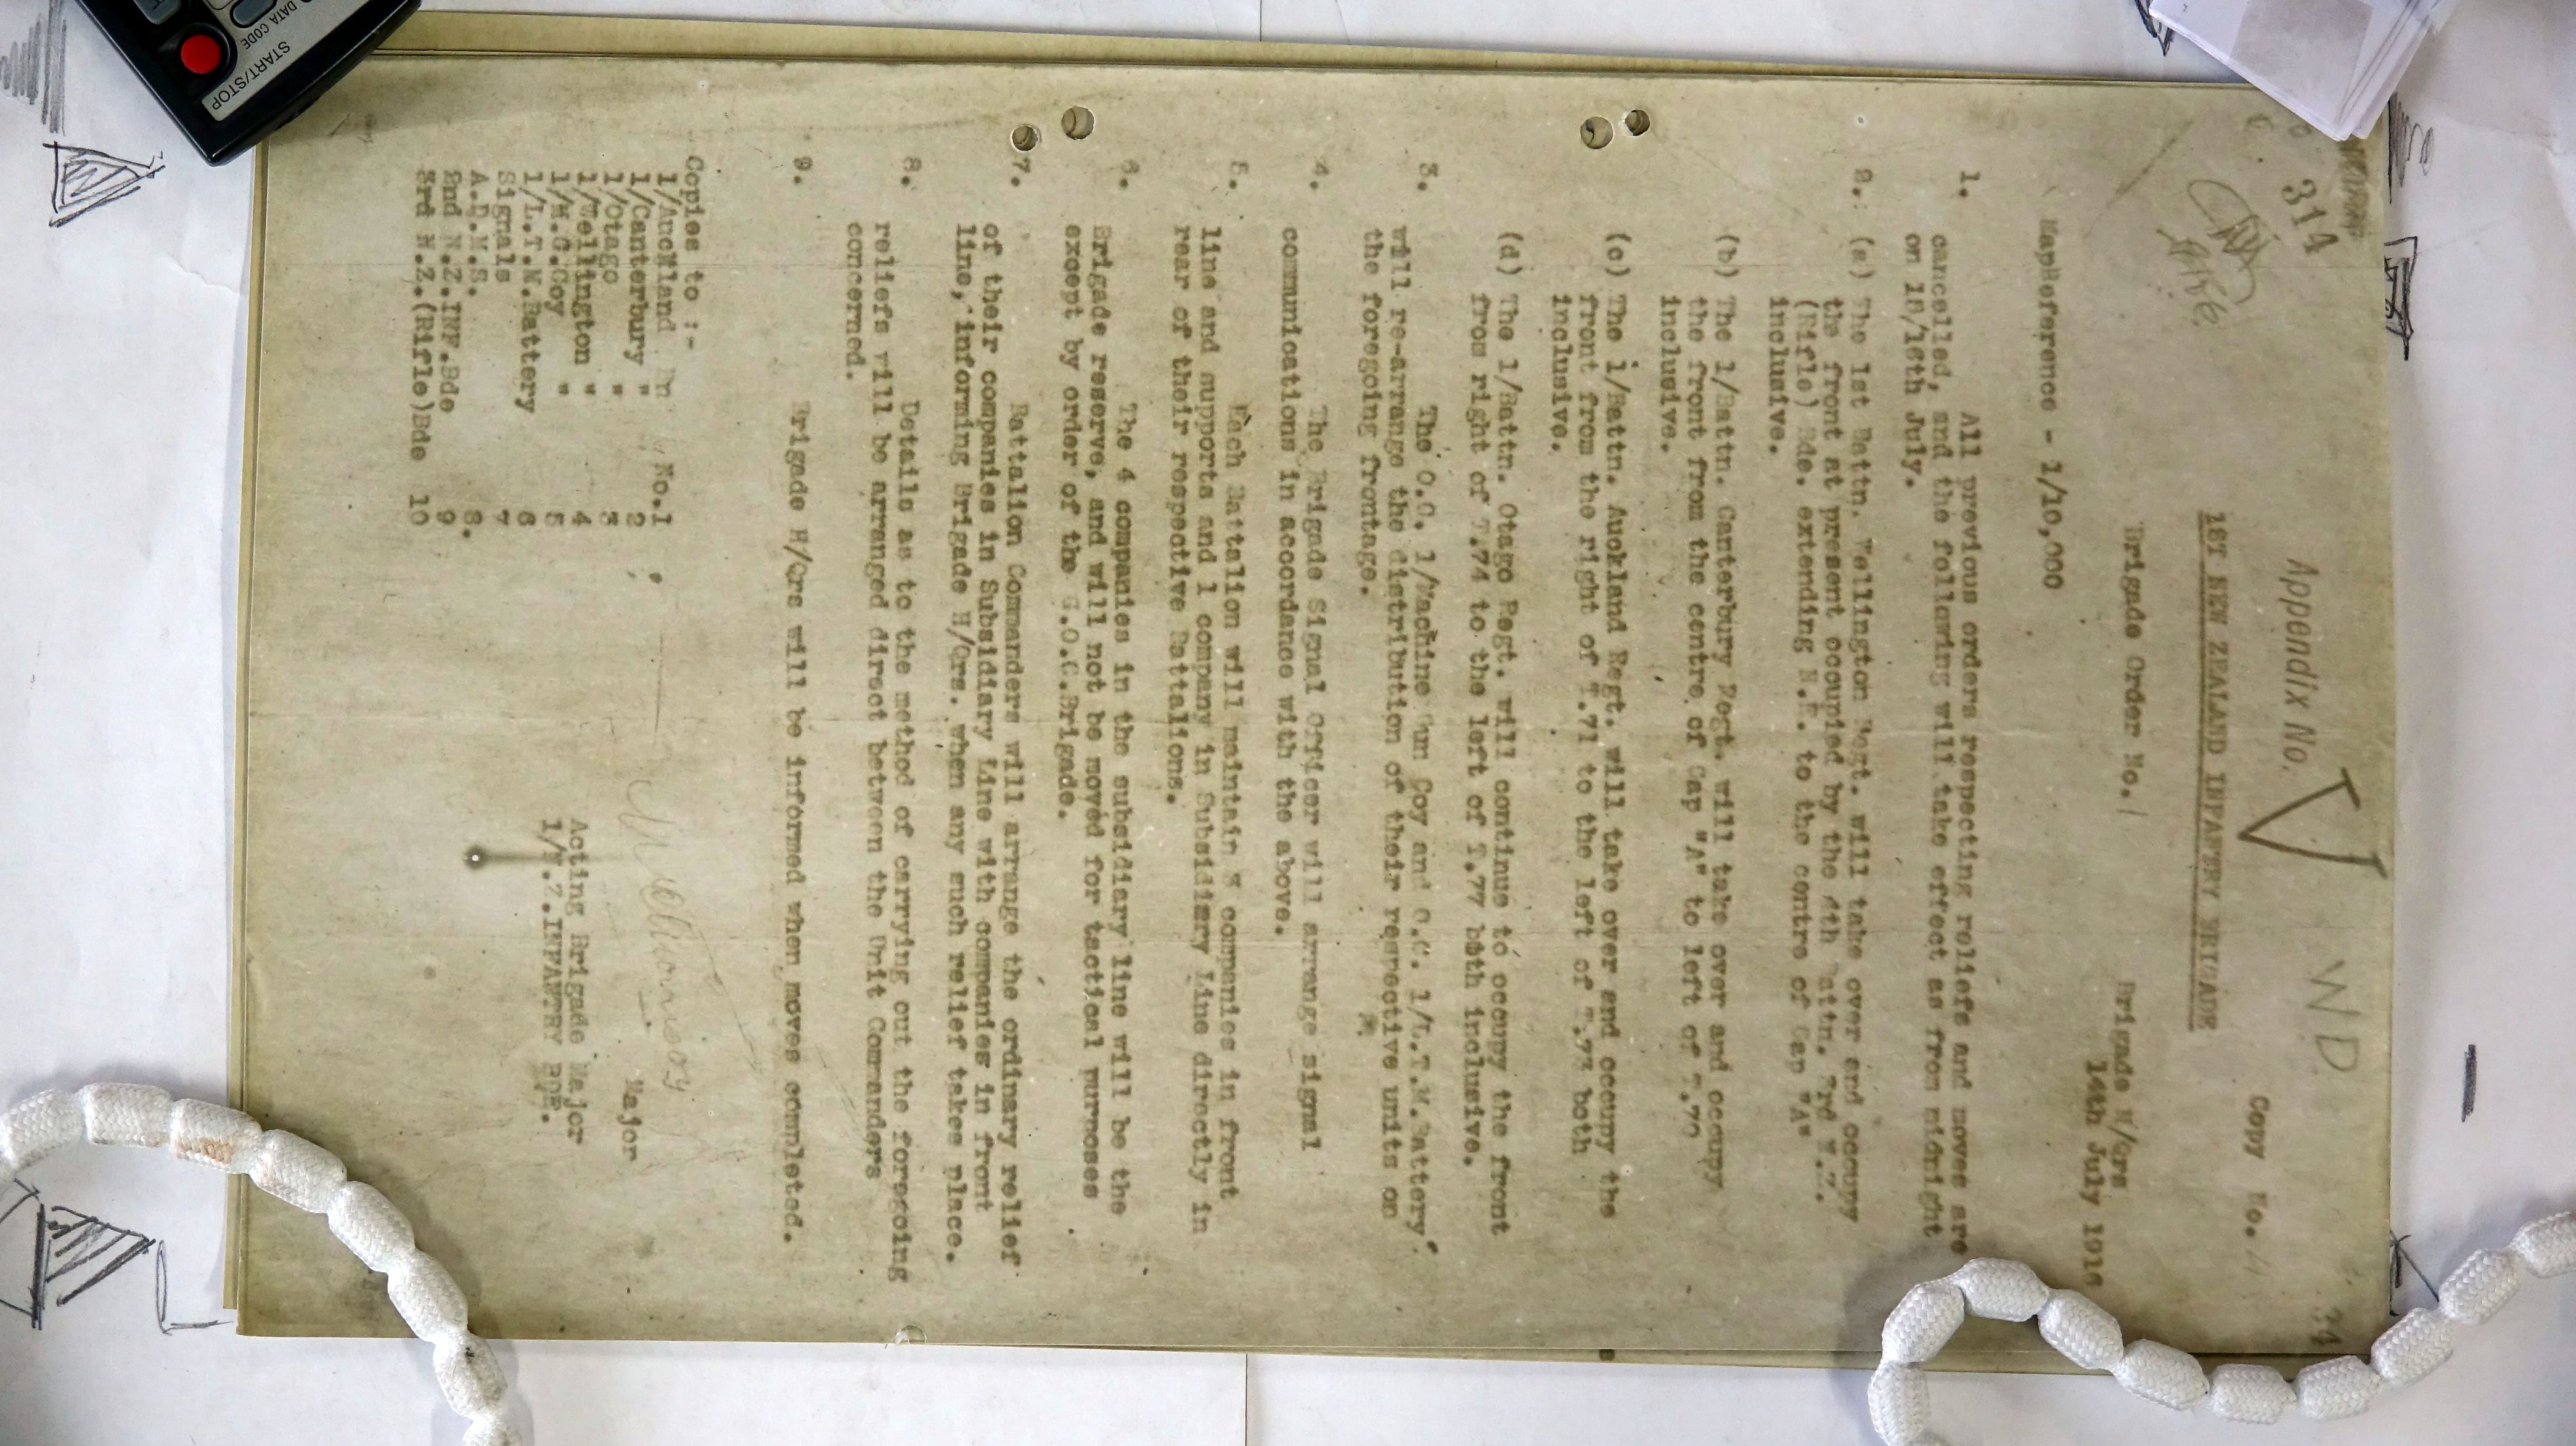 START/STOP
DATA CODE
314
Appendix No. V W D
Copy No.
1ST NEW ZEALAND INFANTRY BRIGADE
Brigade Order No. 1
Brigade H/Qrs
14th July 1916
MapReference - 1/10,000
1. All previous orders respecting reliefs and moves are
cancelled, and the following will take effect as from midnight
on 15/16th July.
2. (a) The 1st Battn. Wellington Regt. will take over and occupy
the front at present occupied by the 4th Battn. 3rd N.Z.
(Rifle) Bde. extending N.E. to the centre of Gap "A"
inclusive.
(b) The 1/Battn. Canterbury Regt. will take over and occupy
the front from the centre of Gap "A" to left of T.70
inclusive.
(c) The 1/Battn. Auckland Regt. will take over and occupy the
front from the right of T.71 to the left of T.73 both
inclusive.
(d) The 1/Battn. Otago Regt. will continue to occupy the front
from right of T.74 to the left of T.77 both inclusive.
3. The O.C. 1/Machine Gun Coy and O.C. 1/L.T.M.Battery
will re-arrange the distribution of their respective units on
the foregoing frontage.
4. The Brigade Signal Officer will arrange signal
communications in accordance with the above.
5. Each Battalion will maintain 3 companies in front
line and supports and 1 company in Subsidiary Line directly in
rear of their respective Battalions.
6. The 4 companies in the subsidiary line will be the
Brigade reserve, and will not be moved for tactical purposes
except by order of the G.O.C.Brigade.
7. Battalion Commanders will arrange the ordinary relief
of their companies in Subsidiary Line with companies in front
line, informing Brigade H/Qrs. when any such relief takes place.
8. Details as to the method of carrying out the foregoing
reliefs will be arranged direct between the Unit Commanders
concerned.
9. Brigade H/Qrs will be informed when moves completed.
Major
Acting Brigade Major
1/N.Z.INFANTRY BDE.
Copies to :-
1/Auckland Bn No.1
1/Canterbury " 2
1/Otago " 3
1/Wellington " 4
1/M.G.Coy " 5
1/L.T.M.Battery 6
Signals 7
A.D.M.S. 8.
2nd N.Z.INF.Bde 9
3rd N.Z.(Rifle)Bde 10